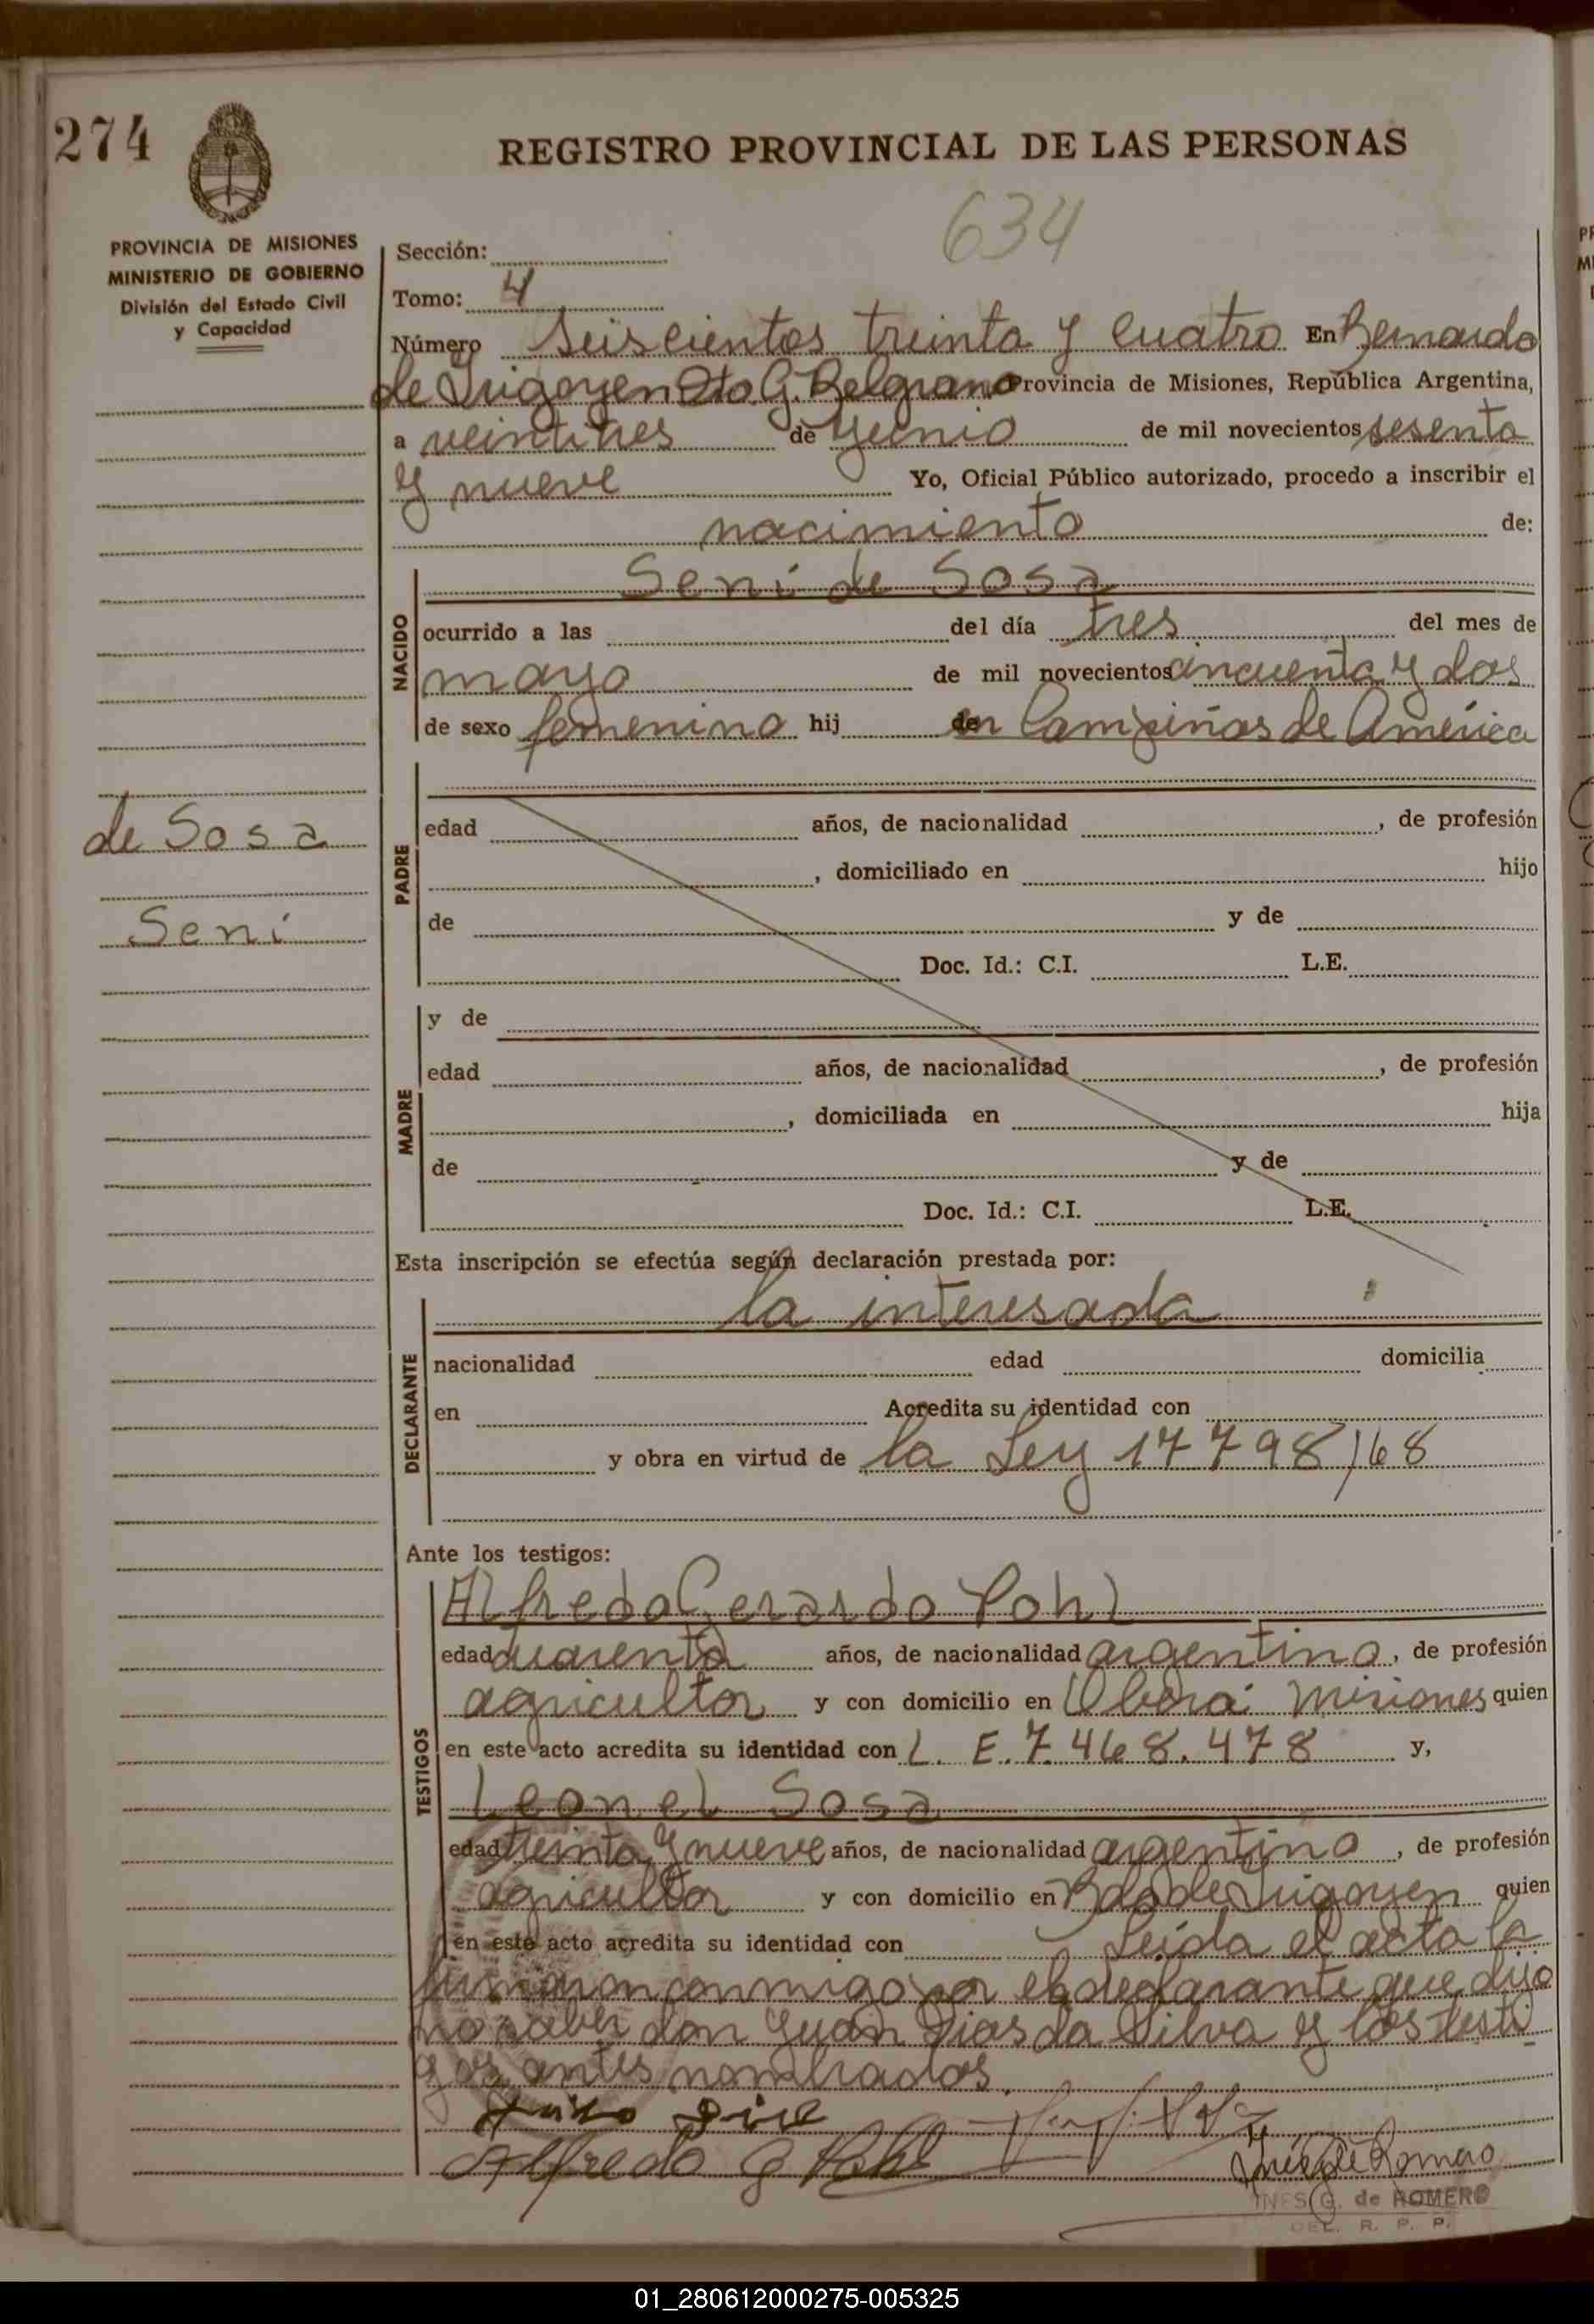 274
REGISTRO PROVINCIAL DE LAS PERSONAS
634
PROVINCIA DE MISIONES
MINISTERIO DE GOBIERNO
División del Estado Civil
y Capacidad
Sección:
Tomo: 4
Número Seiscientos treinta y cuatro En Bernardo
de Irigoyen Dto. G. Belgrano Provincia de Misiones, República Argentina,
a veintitres de Junio de mil novecientos sesenta
y nueve Yo, Oficial Público autorizado, procedo a inscribir el
nacimiento de:
NACIDO
Seni de Sosa
ocurrido a las del día tres del mes de
mayo de mil novecientos cincuenta y dos
de sexo femenino hij en Campiñas de América
de Sosa
Seni
PADRE
edad años, de nacionalidad , de profesión
, domiciliado en hijo
de y de
Doc. Id.: C.I. L.E.
MADRE
y de
edad años, de nacionalidad , de profesión
, domiciliada en hija
de y de
Doc. Id.: C.I. L.E.
Esta inscripción se efectúa según declaración prestada por:
DECLARANTE
la interesada
nacionalidad edad domicilia
en Acredita su identidad con
y obra en virtud de la Ley 17798/68
Ante los testigos:
TESTIGOS
Alfredo Gerardo Pohl
edad cuarenta años, de nacionalidad argentino, de profesión
agricultor y con domicilio en Oberá Misiones quien
en este acto acredita su identidad con L. E. 7.468.478 y,
Leonel Sosa
edad treinta y nueve años, de nacionalidad argentino, de profesión
agricultor y con domicilio en Bdo de Irigoyen quien
en este acto acredita su identidad con Leida el acta la
firmaron conmigo por el declarante que dijo
no saber don Juan Dias da Silva y los testi
gos antes nombrados.
Alfredo G Pohl
Inés G de Romero
INES G. de ROMERO
DEL. R. P. P.
01_280612000275-005325